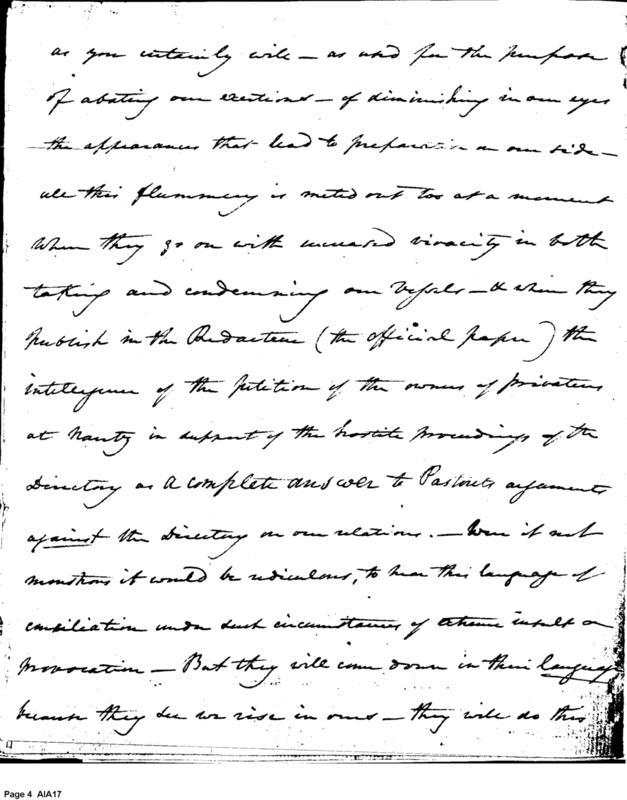 as you certainly will — as used for the purpose
of abating our exertions — of diminishing in our eyes
the appearances that lead to preparation on our side —
all this flummery is meted out too at a moment
when they go on with increased vivacity in both
taking and condemning our vessels — & when they
publish in the Redacteur (the official paper) the
intelligence of the petition of the owners of privateers
at Nantz in support of the hostile proceedings of the
Directory as a complete answer to Pastorets arguments
against the Directory on our relations. — Were it not
monstrous it would be ridiculous, to hear this language of
conciliation under such circumstances of extreme insult or
provocation — But they will come down in their language
because they see we rise in ours — they will do this
Page 4 AIA17